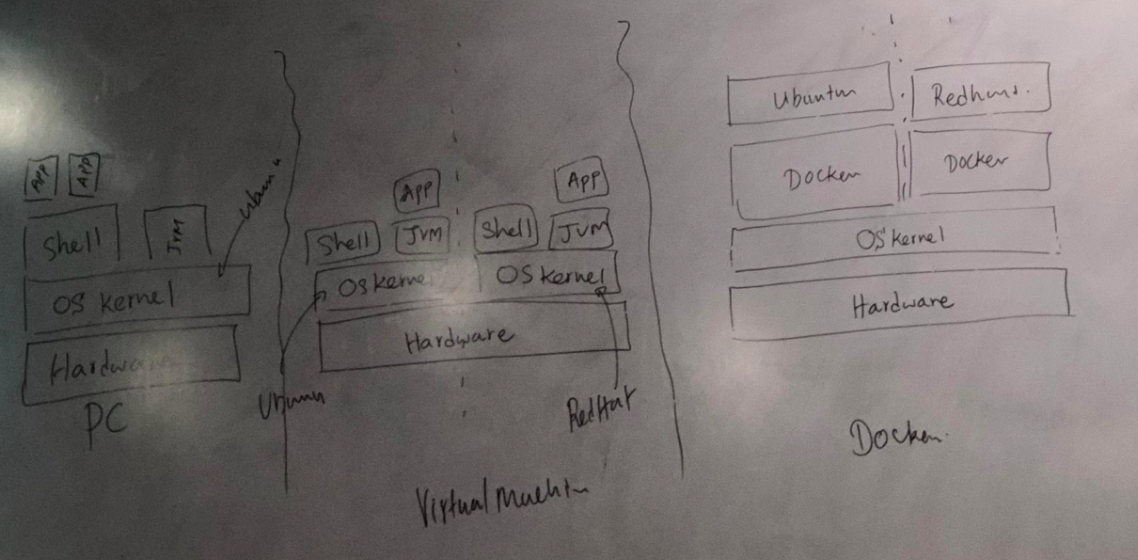 App
App
Shell
JVM
Ubun
OS Kernel
Hardware
PC
App
App
Shell
JVM
Shell
JVM
OS Kernel
OS Kernel
Hardware
Ubunu
RedHat
Virtual Machin
Ubuntu
Redhat.
Docker
Docker
OS Kernel
Hardware
Docker.